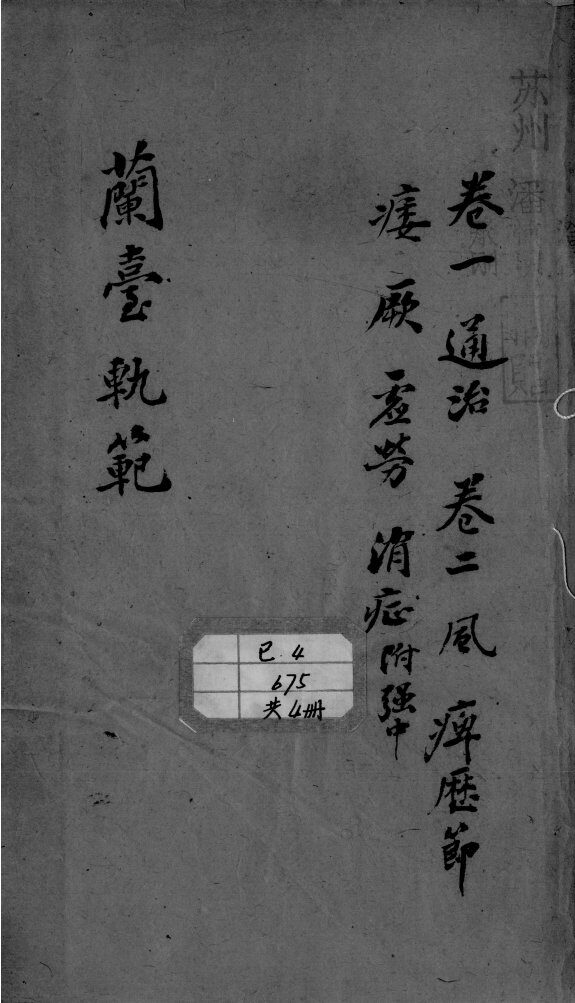 卷一 通治 卷二 風 痺歷節
痿 厥 虛勞 消症附强中
蘭臺軌範
已.4
675
共4册
苏州 潘